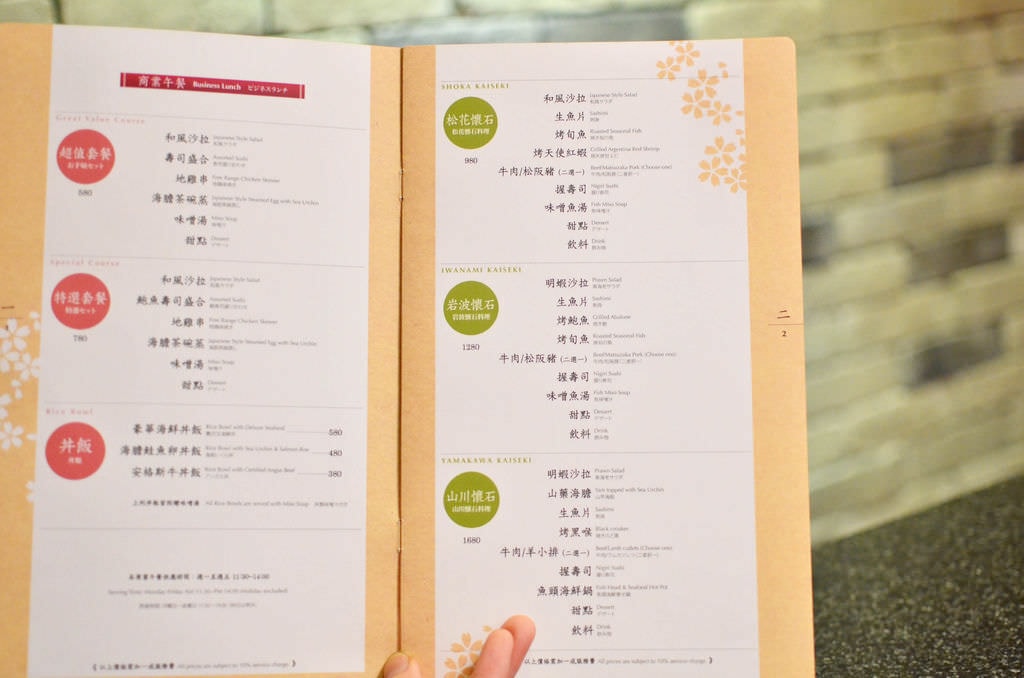 商業午餐 Business Lunch ビジネスランチ
Great Value Course
超值套餐
お手頃セット
580
和風沙拉 Japanese Style Salad
和風サラダ
壽司盛合 Assorted Sushi
地雞串 Free Range Chicken Skewer
海膽茶碗蒸 Japanese Style Steamed Egg with Sea Urchin
味噌湯 Miso Soup
味噌汁
甜點 Dessert
デザート
Special Course
特選套餐
特選セット
780
和風沙拉 Japanese Style Salad
和風サラダ
鮑魚壽司盛合 Assorted Sushi
地雞串 Free Range Chicken Skewer
海膽茶碗蒸 Japanese Style Steamed Egg with Sea Urchin
味噌湯 Miso Soup
味噌汁
甜點 Dessert
デザート
Rice Bowl
丼飯
丼類
豪華海鮮丼飯 Rice Bowl with Deluxe Seafood 580
海膽鮭魚卵丼飯 Rice Bowl with Sea Urchin & Salmon Roe 480
安格斯牛丼飯 Rice Bowl with Certified Angus Beef 380
上列丼飯皆附贈味噌湯 All Rice Bowls are served with Miso Soup
本商業午餐供應時間：週一至週五 11:30~14:00
《 以上價格需加一成服務費 All prices are subject to 10% service charge. 》
一
SHOKA KAISEKI
松花懷石
松花懷石料理
980
和風沙拉 Japanese Style Salad
和風サラダ
生魚片 Sashimi
刺身
烤旬魚 Roasted Seasonal Fish
烤天使紅蝦 Grilled Argentina Red Shrimp
牛肉/松阪豬 (二選一) Beef/Matsuzaka Pork (Choose one)
握壽司 Nigiri Sushi
握り寿司
味噌魚湯 Fish Miso Soup
甜點 Dessert
デザート
飲料 Drink
飲み物
IWANAMI KAISEKI
岩波懷石
岩波懷石料理
1280
明蝦沙拉 Prawn Salad
生魚片 Sashimi
刺身
烤鮑魚 Grilled Abalone
烤旬魚 Roasted Seasonal Fish
牛肉/松阪豬 (二選一) Beef/Matsuzaka Pork (Choose one)
握壽司 Nigiri Sushi
握り寿司
味噌魚湯 Fish Miso Soup
甜點 Dessert
デザート
飲料 Drink
飲み物
YAMAKAWA KAISEKI
山川懷石
山川懷石料理
1680
明蝦沙拉 Prawn Salad
山藥海膽 Yam topped with Sea Urchin
生魚片 Sashimi
刺身
烤黑喉 Black croaker
牛肉/羊小排 (二選一) Beef/Lamb cutlets (Choose one)
握壽司 Nigiri Sushi
握り寿司
魚頭海鮮鍋 Fish Head & Seafood Hot Pot
甜點 Dessert
デザート
飲料 Drink
飲み物
以上價格需加一成服務費 All prices are subject to 10% service charge. 》
二
2